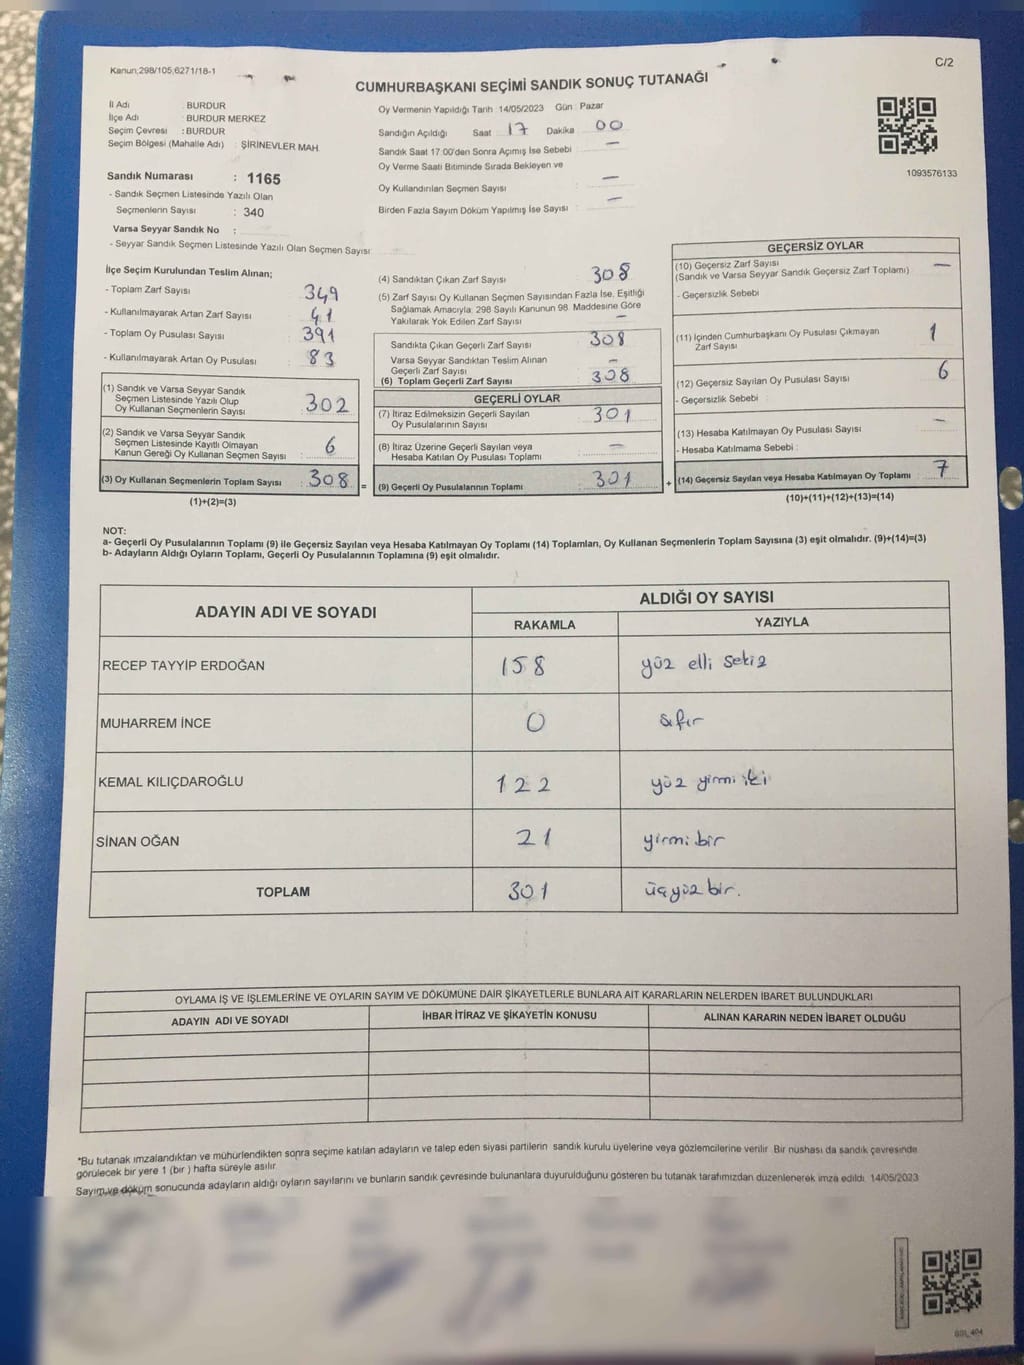 Kanun;298/105,6271/18-1
C/2
CUMHURBAŞKANI SEÇİMİ SANDIK SONUÇ TUTANAĞI
İl Adı : BURDUR
İlçe Adı : BURDUR MERKEZ
Seçim Çevresi : BURDUR
Seçim Bölgesi (Mahalle Adı) : ŞİRİNEVLER MAH.
Sandık Numarası : 1165
- Sandık Seçmen Listesinde Yazılı Olan
Seçmenlerin Sayısı : 340
Varsa Seyyar Sandık No :
- Seyyar Sandık Seçmen Listesinde Yazılı Olan Seçmen Sayısı
Oy Vermenin Yapıldığı Tarih :14/05/2023 Gün : Pazar
Sandığın Açıldığı Saat 17 Dakika 00
Sandık Saat 17.00'den Sonra Açımış İse Sebebi : —
Oy Verme Saati Bitiminde Sırada Bekleyen ve
Oy Kullandırılan Seçmen Sayısı : —
Birden Fazla Sayım Döküm Yapılmış İse Sayısı : —
1093576133
İlçe Seçim Kurulundan Teslim Alınan;
- Toplam Zarf Sayısı : 349
- Kullanılmayarak Artan Zarf Sayısı : 41
- Toplam Oy Pusulası Sayısı : 391
- Kullanılmayarak Artan Oy Pusulası : 83
(1) Sandık ve Varsa Seyyar Sandık
Seçmen Listesinde Yazılı Olup
Oy Kullanan Seçmenlerin Sayısı : 302
(2) Sandık ve Varsa Seyyar Sandık
Seçmen Listesinde Kayıtlı Olmayan
Kanun Gereği Oy Kullanan Seçmen Sayısı : 6
(3) Oy Kullanan Seçmenlerin Toplam Sayısı : 308
(1)+(2)=(3)
(4) Sandıktan Çıkan Zarf Sayısı : 308
(5) Zarf Sayısı Oy Kullanan Seçmen Sayısından Fazla İse, Eşitliği
Sağlamak Amacıyla; 298 Sayılı Kanunun 98. Maddesine Göre
Yakılarak Yok Edilen Zarf Sayısı : —
Sandıkta Çıkan Geçerli Zarf Sayısı : 308
Varsa Seyyar Sandıktan Teslim Alınan
Geçerli Zarf Sayısı : —
(6) Toplam Geçerli Zarf Sayısı : 308
GEÇERLİ OYLAR
(7) İtiraz Edilmeksizin Geçerli Sayılan
Oy Pusulalarının Sayısı : 301
(8) İtiraz Üzerine Geçerli Sayılan veya
Hesaba Katılan Oy Pusulası Toplamı : —
= (9) Geçerli Oy Pusulalarının Toplamı : 301
GEÇERSİZ OYLAR
(10) Geçersiz Zarf Sayısı
(Sandık ve Varsa Seyyar Sandık Geçersiz Zarf Toplamı) : —
- Geçersizlik Sebebi :
(11) İçinden Cumhurbaşkanı Oy Pusulası Çıkmayan
Zarf Sayısı : 1
(12) Geçersiz Sayılan Oy Pusulası Sayısı : 6
- Geçersizlik Sebebi :
(13) Hesaba Katılmayan Oy Pusulası Sayısı : —
- Hesaba Katılmama Sebebi :
+ (14) Geçersiz Sayılan veya Hesaba Katılmayan Oy Toplamı : 7
(10)+(11)+(12)+(13)=(14)
NOT:
a- Geçerli Oy Pusulalarının Toplamı (9) ile Geçersiz Sayılan veya Hesaba Katılmayan Oy Toplamı (14) Toplamları, Oy Kullanan Seçmenlerin Toplam Sayısına (3) eşit olmalıdır. (9)+(14)=(3)
b- Adayların Aldığı Oyların Toplamı, Geçerli Oy Pusulalarının Toplamına (9) eşit olmalıdır.
ADAYIN ADI VE SOYADI
ALDIĞI OY SAYISI
RAKAMLA YAZIYLA
RECEP TAYYİP ERDOĞAN 158 yüz elli sekiz
MUHARREM İNCE 0 sıfır
KEMAL KILIÇDAROĞLU 122 yüz yirmi iki
SİNAN OĞAN 21 yirmi bir
TOPLAM 301 üçyüz bir.
OYLAMA İŞ VE İŞLEMLERİNE VE OYLARIN SAYIM VE DÖKÜMÜNE DAİR ŞİKAYETLERLE BUNLARA AİT KARARLARIN NELERDEN İBARET BULUNDUKLARI
ADAYIN ADI VE SOYADI İHBAR İTİRAZ VE ŞİKAYETİN KONUSU ALINAN KARARIN NEDEN İBARET OLDUĞU
*Bu tutanak imzalandıktan ve mühürlendikten sonra seçime katılan adayların ve talep eden siyasi partilerin sandık kurulu üyelerine veya gözlemcilerine verilir. Bir nüshası da sandık çevresinde
görülecek bir yere 1 (bir ) hafta süreyle asılır.
Sayım ve döküm sonucunda adayların aldığı oyların sayılarını ve bunların sandık çevresinde bulunanlara duyurulduğunu gösteren bu tutanak tarafımızdan düzenlenerek imza edildi. 14/05/2023